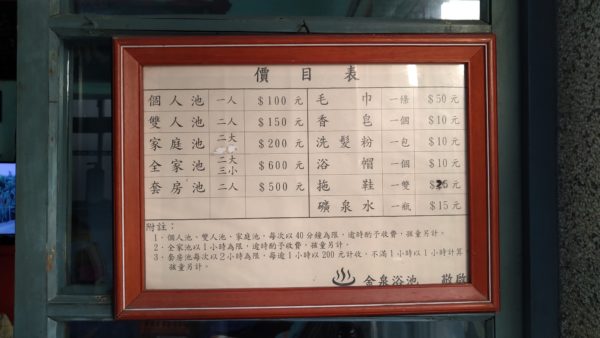 價目表
個人池 一人 $100元 毛巾 一條 $50元
雙人池 二人 $150元 香皂 一個 $10元
家庭池 二大 $200元 洗髮粉 一包 $10元
全家池 二大三小 $600元 浴帽 一個 $10元
套房池 二人 $500元 拖鞋 一雙 元
礦泉水 一瓶 $15元
附註：
1．個人池、雙人池、家庭池，每次以40分鐘為限，逾時酌予收費，孩童另計。
2．全家池以1小時為限，逾時酌予收費，孩童另計。
3．套房池每次以2小時為限，每逾1小時以200元計收，不滿1小時以1小時計算
孩童另計。
金泉浴池 敬啟